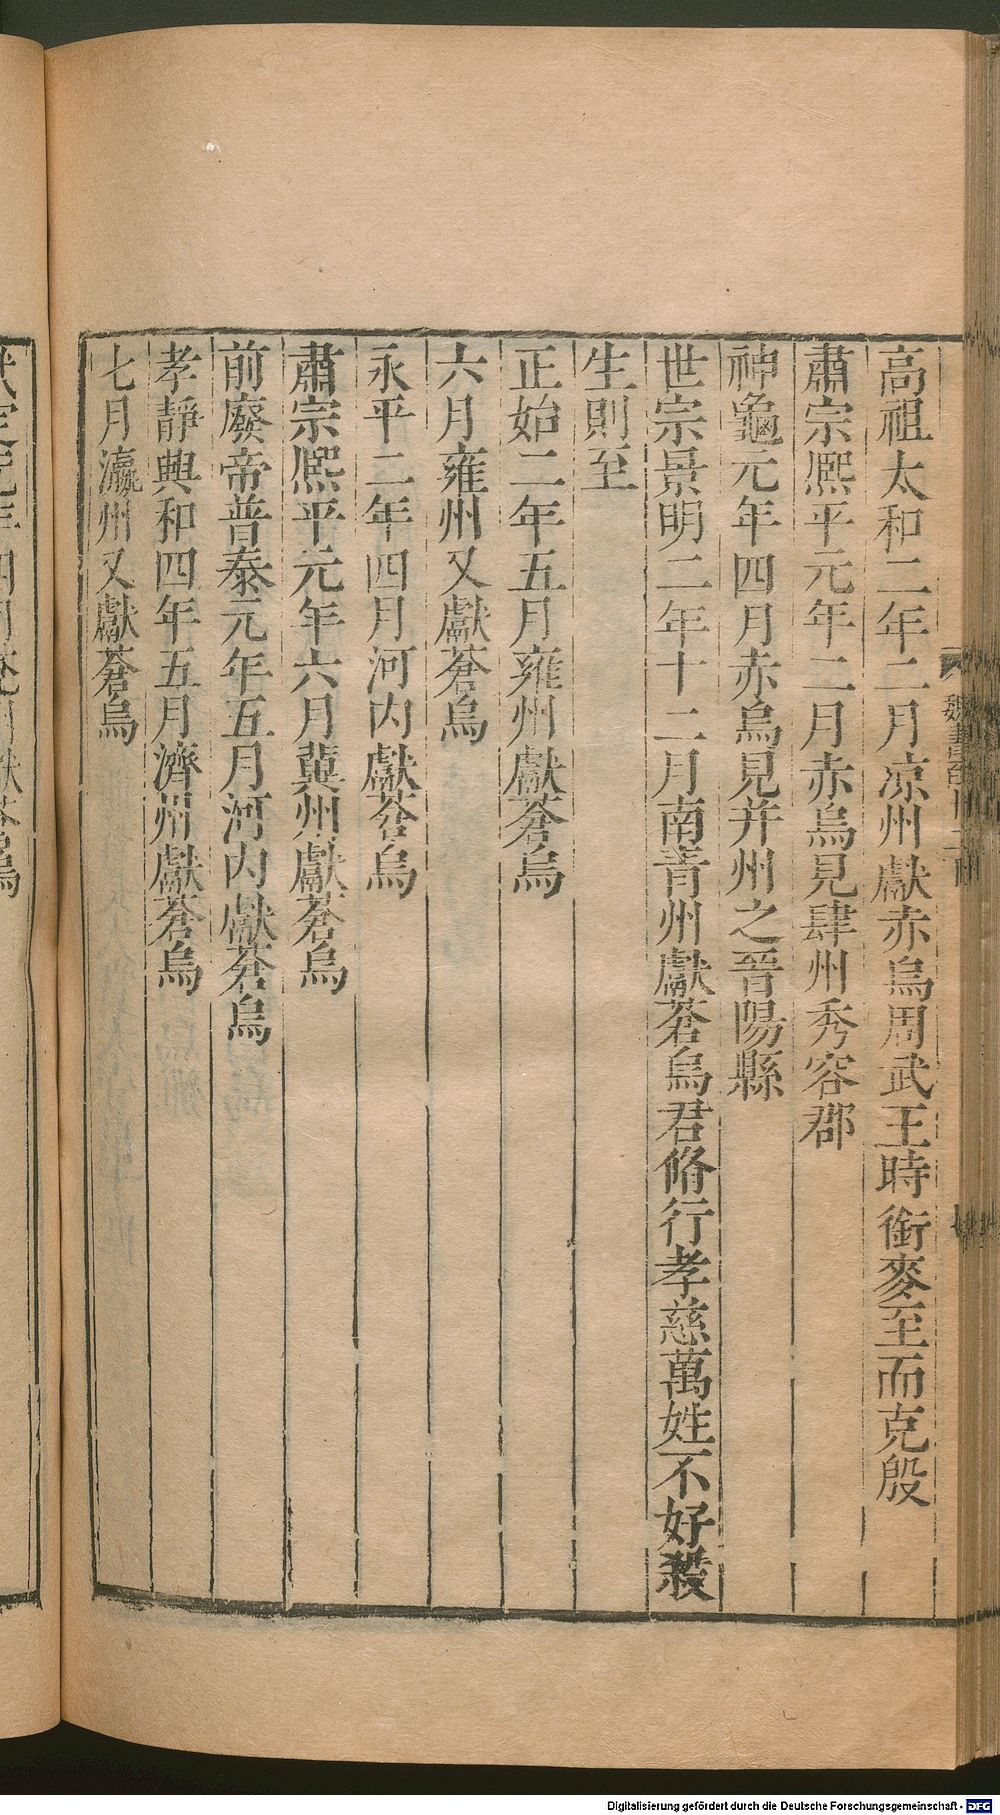 高祖太和二年二月涼州獻赤烏周武王時銜麥至而克殷
肅宗熙平元年二月赤烏見肆州秀容郡
神龜元年四月赤烏見并州之晉陽縣
世宗景明二年十二月南青州獻蒼烏君脩行孝慈萬姓不好殺
生則至
正始二年五月雍州獻蒼烏
六月雍州又獻蒼烏
永平二年四月河內獻蒼烏
肅宗熙平元年六月冀州獻蒼烏
前廢帝普泰元年五月河內獻蒼烏
孝靜興和四年五月濟州獻蒼烏
七月瀛州又獻蒼烏
Digitalisierung gefördert durch die Deutsche Forschungsgemeinschaft - DFG